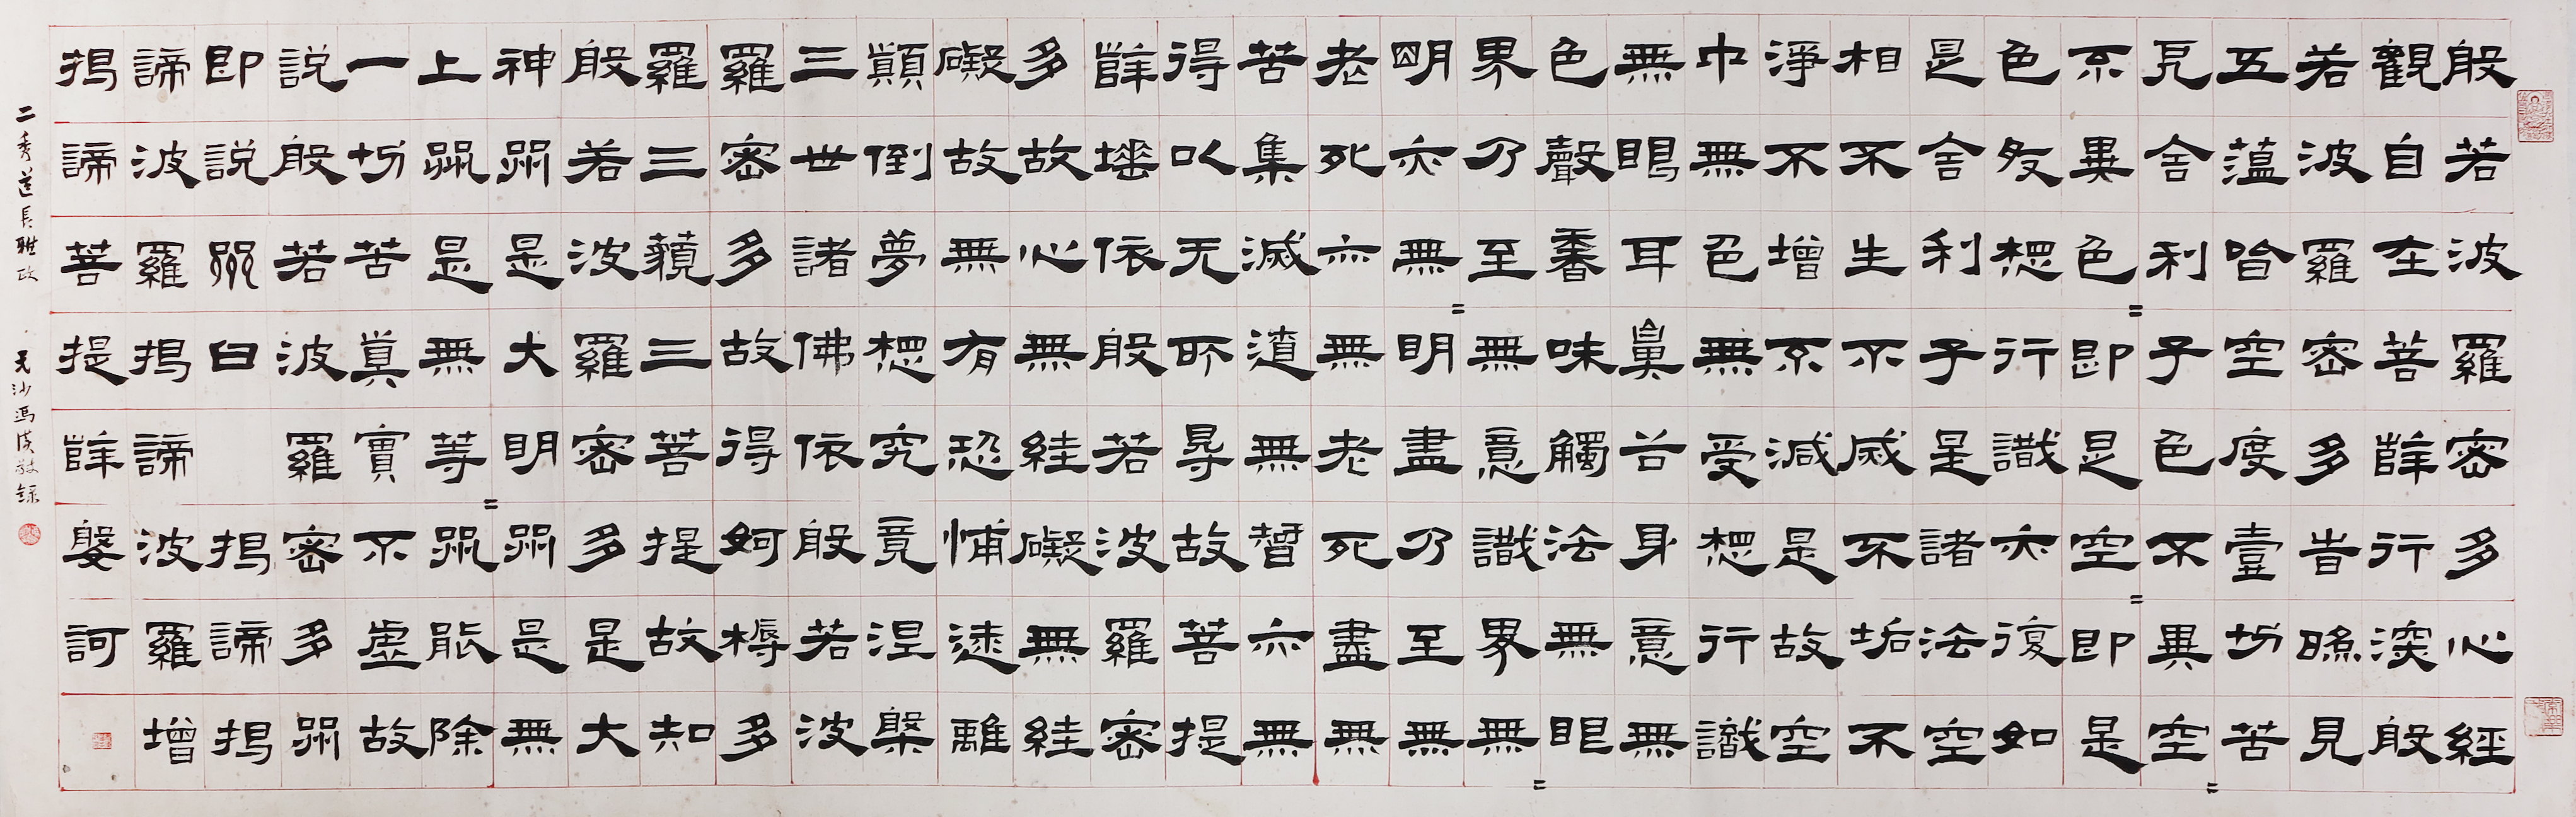 般若波羅密多心經
觀自在菩薩行深般
若波羅密多時照見
五蘊皆空度壹切苦
見舍利子色不異空=
不異色=即是空=即是
色受想行識亦復如
是舍利子是諸法空
相不生不滅不垢不
淨不增不減是故空
中無色無受想行識
無眼耳鼻舌身意無
色聲香味觸法無眼
界乃至無意識界無=
明亦無=明盡乃至無
老死亦無老死盡無
苦集滅道無智亦無
得以无所得故菩提
薩埵依般若波羅密
多故心無絓礙無絓
礙故無有恐怖遠離
顛倒夢想究竟涅槃
三世諸佛依般若波
羅密多故得妸耨多
羅三藐三菩提故知
般若波羅密多是大
神咒是大明咒是無
上咒是無等=咒能除
一切苦真實不虛故
説般若波羅密多咒
即説咒曰 揭諦揭
諦波羅揭諦波羅增
揭諦菩提薩婆訶
二秀道長雅政 天沙馮漢敬録